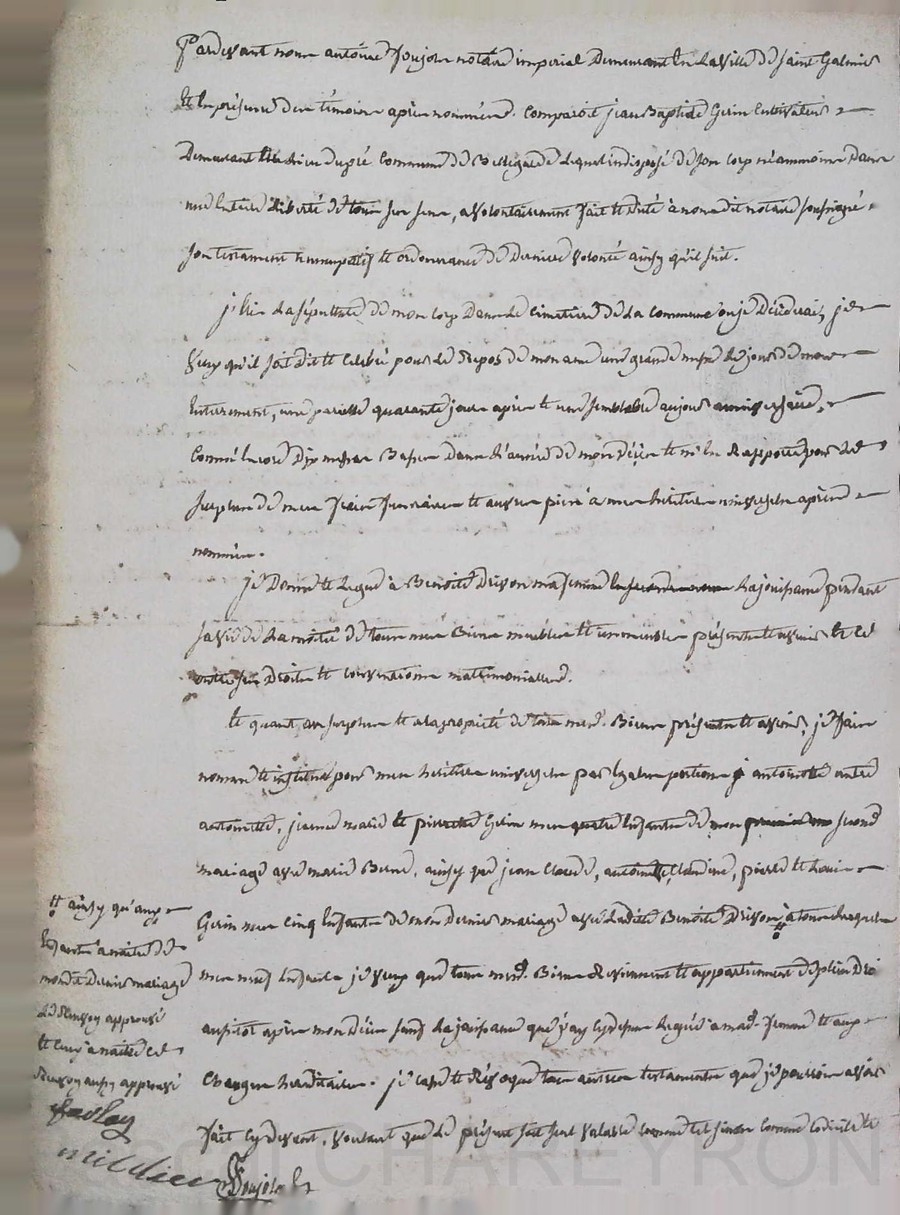 Pardevant nous antoine Joujon notaire imperial Demeurant En La Ville de Saint Galmier
Et En présence des témoins après nommés. Comparoit jean Baptiste Gerin Cultivateur
Demeurant Dupré Commune de Bellegarde Lequel indisposé de Son Corp néammoins Dans
une Entiere liberté de tous Ses Sens, a Volontairement fait Et dicté a nous dit notaire soussigné
Son testament nuncupatif Et ordonnance de Derniere Volonté ainsy qu'il Suit.
j'Elis La Sépulture de mon Corp Dans Le Cimetiere de La Commune ou je Décéderai, je
Veux qu'il Soit dit Et Celebré pour Le Repos de mon ame une grande messe Le jour de mon
Enterement, une pareille quarante jours après Et une Semblable au jour anniversaire,
Comme Encore Dix messes Basses Dans L'année de mon Décès Et m'En Rapporte pour Le
Surplus de mes fraix funeraires Et aux pieté a mes héritiers universels après
nommés.
je Donne Et Legue à Benoite Drivon ma femme La jouissance pendant
Sa vie de La moitié de tous mes Biens meubles Et immeubles présents Et avenir Et Ce
outre Ses Droits Et Conventions matrimoniales.
Et quant au Surplus Et a la propriété de tous mesd. Biens présents Et avenir, je fais
nomme Et institue pour mes héritiers universels par Egales portions antoinette autre
antoinette, jeanne marie Et pierrette Gerin mes quatre Enfants de mon second
mariage avec marie Berne, ainsy que jean Claude, antoine, Claudine, pierre Et Louis
Gerin mes Cinq Enfants de mon Dernier mariage avec Ladite Benoite Drivon, a tous Lesquels
mes neuf Enfants je Veux que tous mesd. Biens Reviennent Et appartiennent de plein Droit
aussitot après mon Décès Sauf La jouissance que j'ay Cy dessus Leguée a mad. femme Et aux
Charges hereditaires. je Casse Et Révoque tous autres testaments que je pourrois avoir
fait Cy devant, Voulant que Le présent Soit Seul Valable Comme tel Sinon Comme Codicile Et
# ainsy qu'aux
Enfants a naitre de
mondit Dernier mariage
Le Renvoy approuvé
Et Ceux a naitre Le
Renvoy aussy approuvé
Joujon